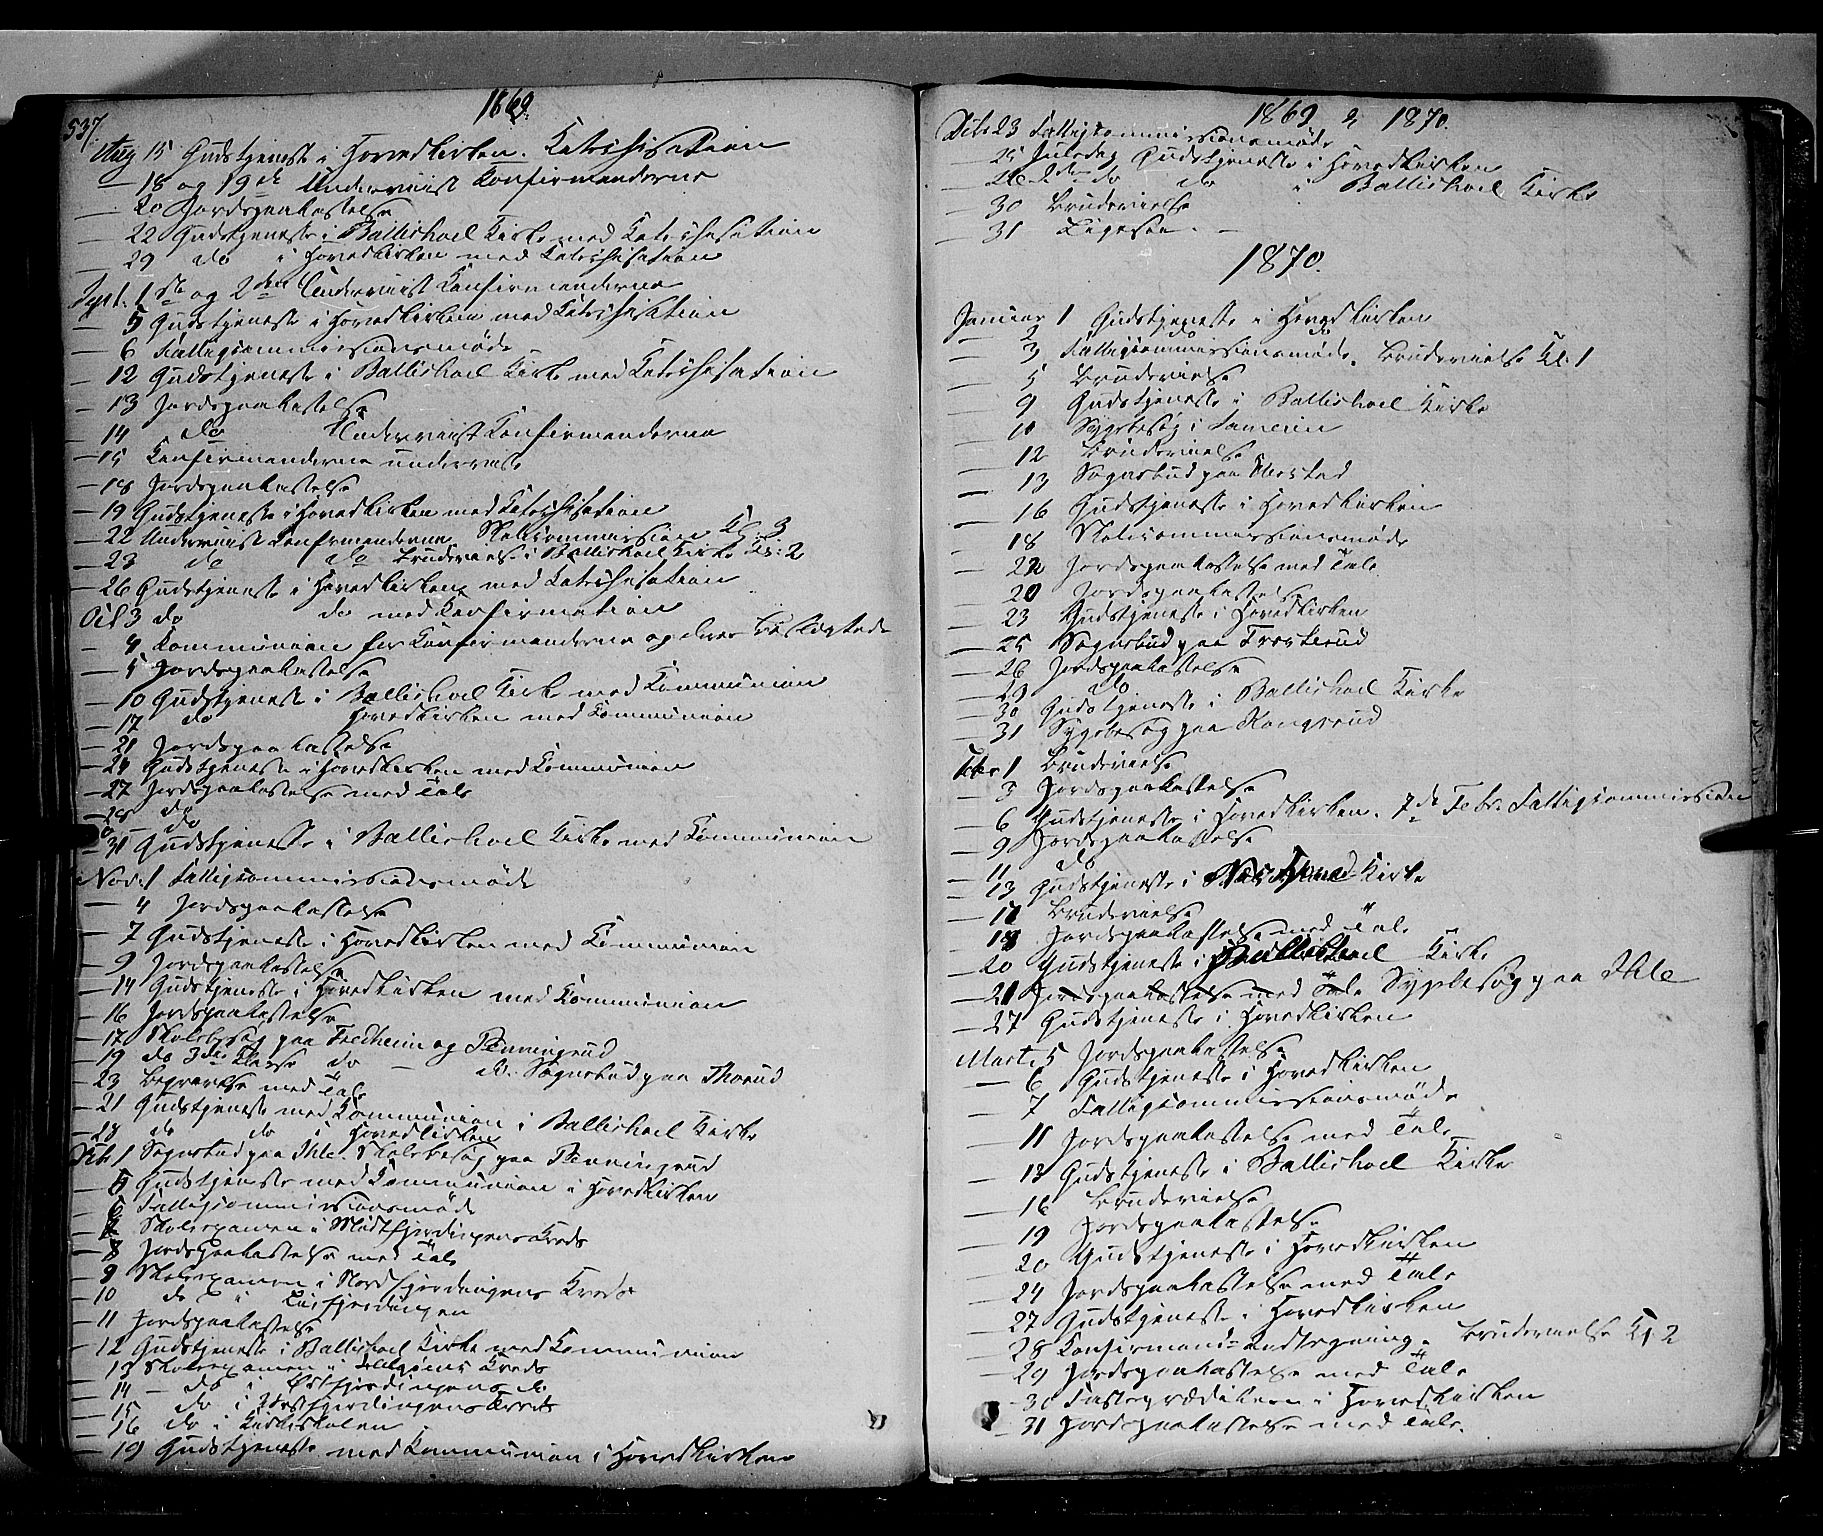 537.
1869.
Aug 15 Gudstjeneste i Hovedkirken. Katechisation
— 18 og 19de Underviist Konfirmanderne
— 20 Jordspaakastelse
— 22 Gudstjeneste i Ballishoel Kirke med Katechisation
— 29 do i Hovedkirken med Katechisation
Sept. 1ste og 2den Underviist Konfirmanderne
— 5 Gudstjeneste i Hovedkirken med Katechisation
— 6 Fattigcommissionsmøde
— 12 Gudstjeneste i Ballishoel Kirke med Katechisation
— 13 Jordspaakastelse
— 14 do Underviist Konfirmanderne
— 15 Konfirmanderne underviste
— 18 Jordspaakastelse
— 19 Gudstjeneste i Hovedkirken med Katechisation
— 22 Underviist Konfirmanderne Skolecommission Kl: 3
— 23 do do Brudevielse i Ballishoel Kirke Kl: 2
— 26 Gudstjeneste i Hovedkirken med Katechisation
Oct 3 do do med Konfirmation
— 4 Kommunion for Konfirmanderne og deres Beslægtede
— 5 Jordspaakastelse
— 10 Gudstjeneste i Ballishoel Kirke med Kommunion
— 17 do Hovedkirken med Kommunion
— 21 Jordspaakastelse
— 24 Gudstjeneste i Hovedkirken med Kommunion
— 27 Jordspaakastelse med Tale
— 28 do
— 31 Gudstjeneste i Ballishoel Kirke med Kommunion
Nov. 1 Fattigcommissionsmøde
— 4 Jordspaakastelse
— 7 Gudstjeneste i Hovedkirken med Kommunion
— 9 Jordspaakastelse
— 14 Gudstjeneste i Hovedkirken med Kommunion
— 16 Jordspaakastelse
— 17 Skolebesøg paa Fredheim og Benningrud
— 19 do 3die Klasse do — do. Sognebud paa Thorud
— 23 Begravelse med Tale
— 21 Gudstjeneste med Kommunion i Ballishoel Kirke
— 28 do do i Hovedkirken
Dcbr 1 Sognebud paa Ihle. Skolebesøg paa Benningrud
— 5 Gudstjeneste med Kommunion i Hovedkirken
— 6 Fattigcommissionsmøde
— 7 Skoleexamen i Midtfjerdingens Kreds
— 8 Jordspaakastelse med Tale
— 9 Skoleexamen i Nordfjerdingens Kreds
— 10 do i fjerdingen
— 11 Jordspaakastelse
— 12 Gudstjeneste i Ballishoel Kirke med Kommunion
— 13 Skoleexamen i Kreds
— 14 — do i Østfjerdingens do.
— 15 do i Vestfjerdingens Kreds
— 16 do i Kirkeskolen
— 19 Gudstjeneste med Kommunion i Hovedkirken
1869 & 1870.
Dcbr 23 Fattigcommissionsmøde
— 25 Juledag Gudstjeneste i Hovedkirken
— 26 2den do do i Ballishoel Kirke
— 30 Brudevielse
— 31 Ligesaa. —
1870.
Januar 1 Gudstjeneste i Hovedkirken
— 2 do do
— 3 Fattigcommissionsmøde. Brudevielse Kl: 1
— 5 Brudevielse
— 9 Gudstjeneste i Ballishoel Kirke
— 10 Sygebesøg i
— 12 Brudevielse
— 13 Sognebud paa
— 16 Gudstjeneste i Hovedkirken
— 18 Skolecommissionsmøde
— 22 Jordspaakastelse med Tale
— 20 Jordspaakastelse
— 23 Gudstjeneste i Hovedkirken
— 25 Sognebud paa Trosterud
— 26 Jordspaakastelse
— 29 do
— 30 Gudstjeneste i Ballishoel Kirke
— 31 Sygebesøg paa Kongsrud
Febr 1 Brudevielse
— 3 Jordspaakastelse
— 6 Gudstjeneste i Hovedkirken. 7de Febr. Fattigcommission
— 9 Jordspaakastelse
— 11 do
— 13 Gudstjeneste i Kirke
— 17 Brudevielse
— 18 Jordspaakastelse med Tale
— 20 Gudstjeneste i Ballishoel Kirke
— 21 Jordspaakastelse med Tale Sygebesøg paa Ihle
— 27 Gudstjeneste i Hovedkirken
Marts 5 Jordspaakastelse
— 6 Gudstjeneste i Hovedkirken
— 7 Fattigcommissionsmøde
— 11 Jordspaakastelse med Tale
— 13 Gudstjeneste i Ballishoel Kirke
— 16 Brudevielse
— 19 Jordspaakastelse
— 20 Gudstjeneste i Hovedkirken
— 24 Jordspaakastelse med Tale
— 27 Gudstjeneste i Hovedkirken
— 28 Konfirmand-Andtegning. Brudevielse Kl 2
— 29 Jordspaakastelse med Tale
— 30 Fasteprædiken i Hovedkirken
— 31 Jordspaakastelse med Tale.